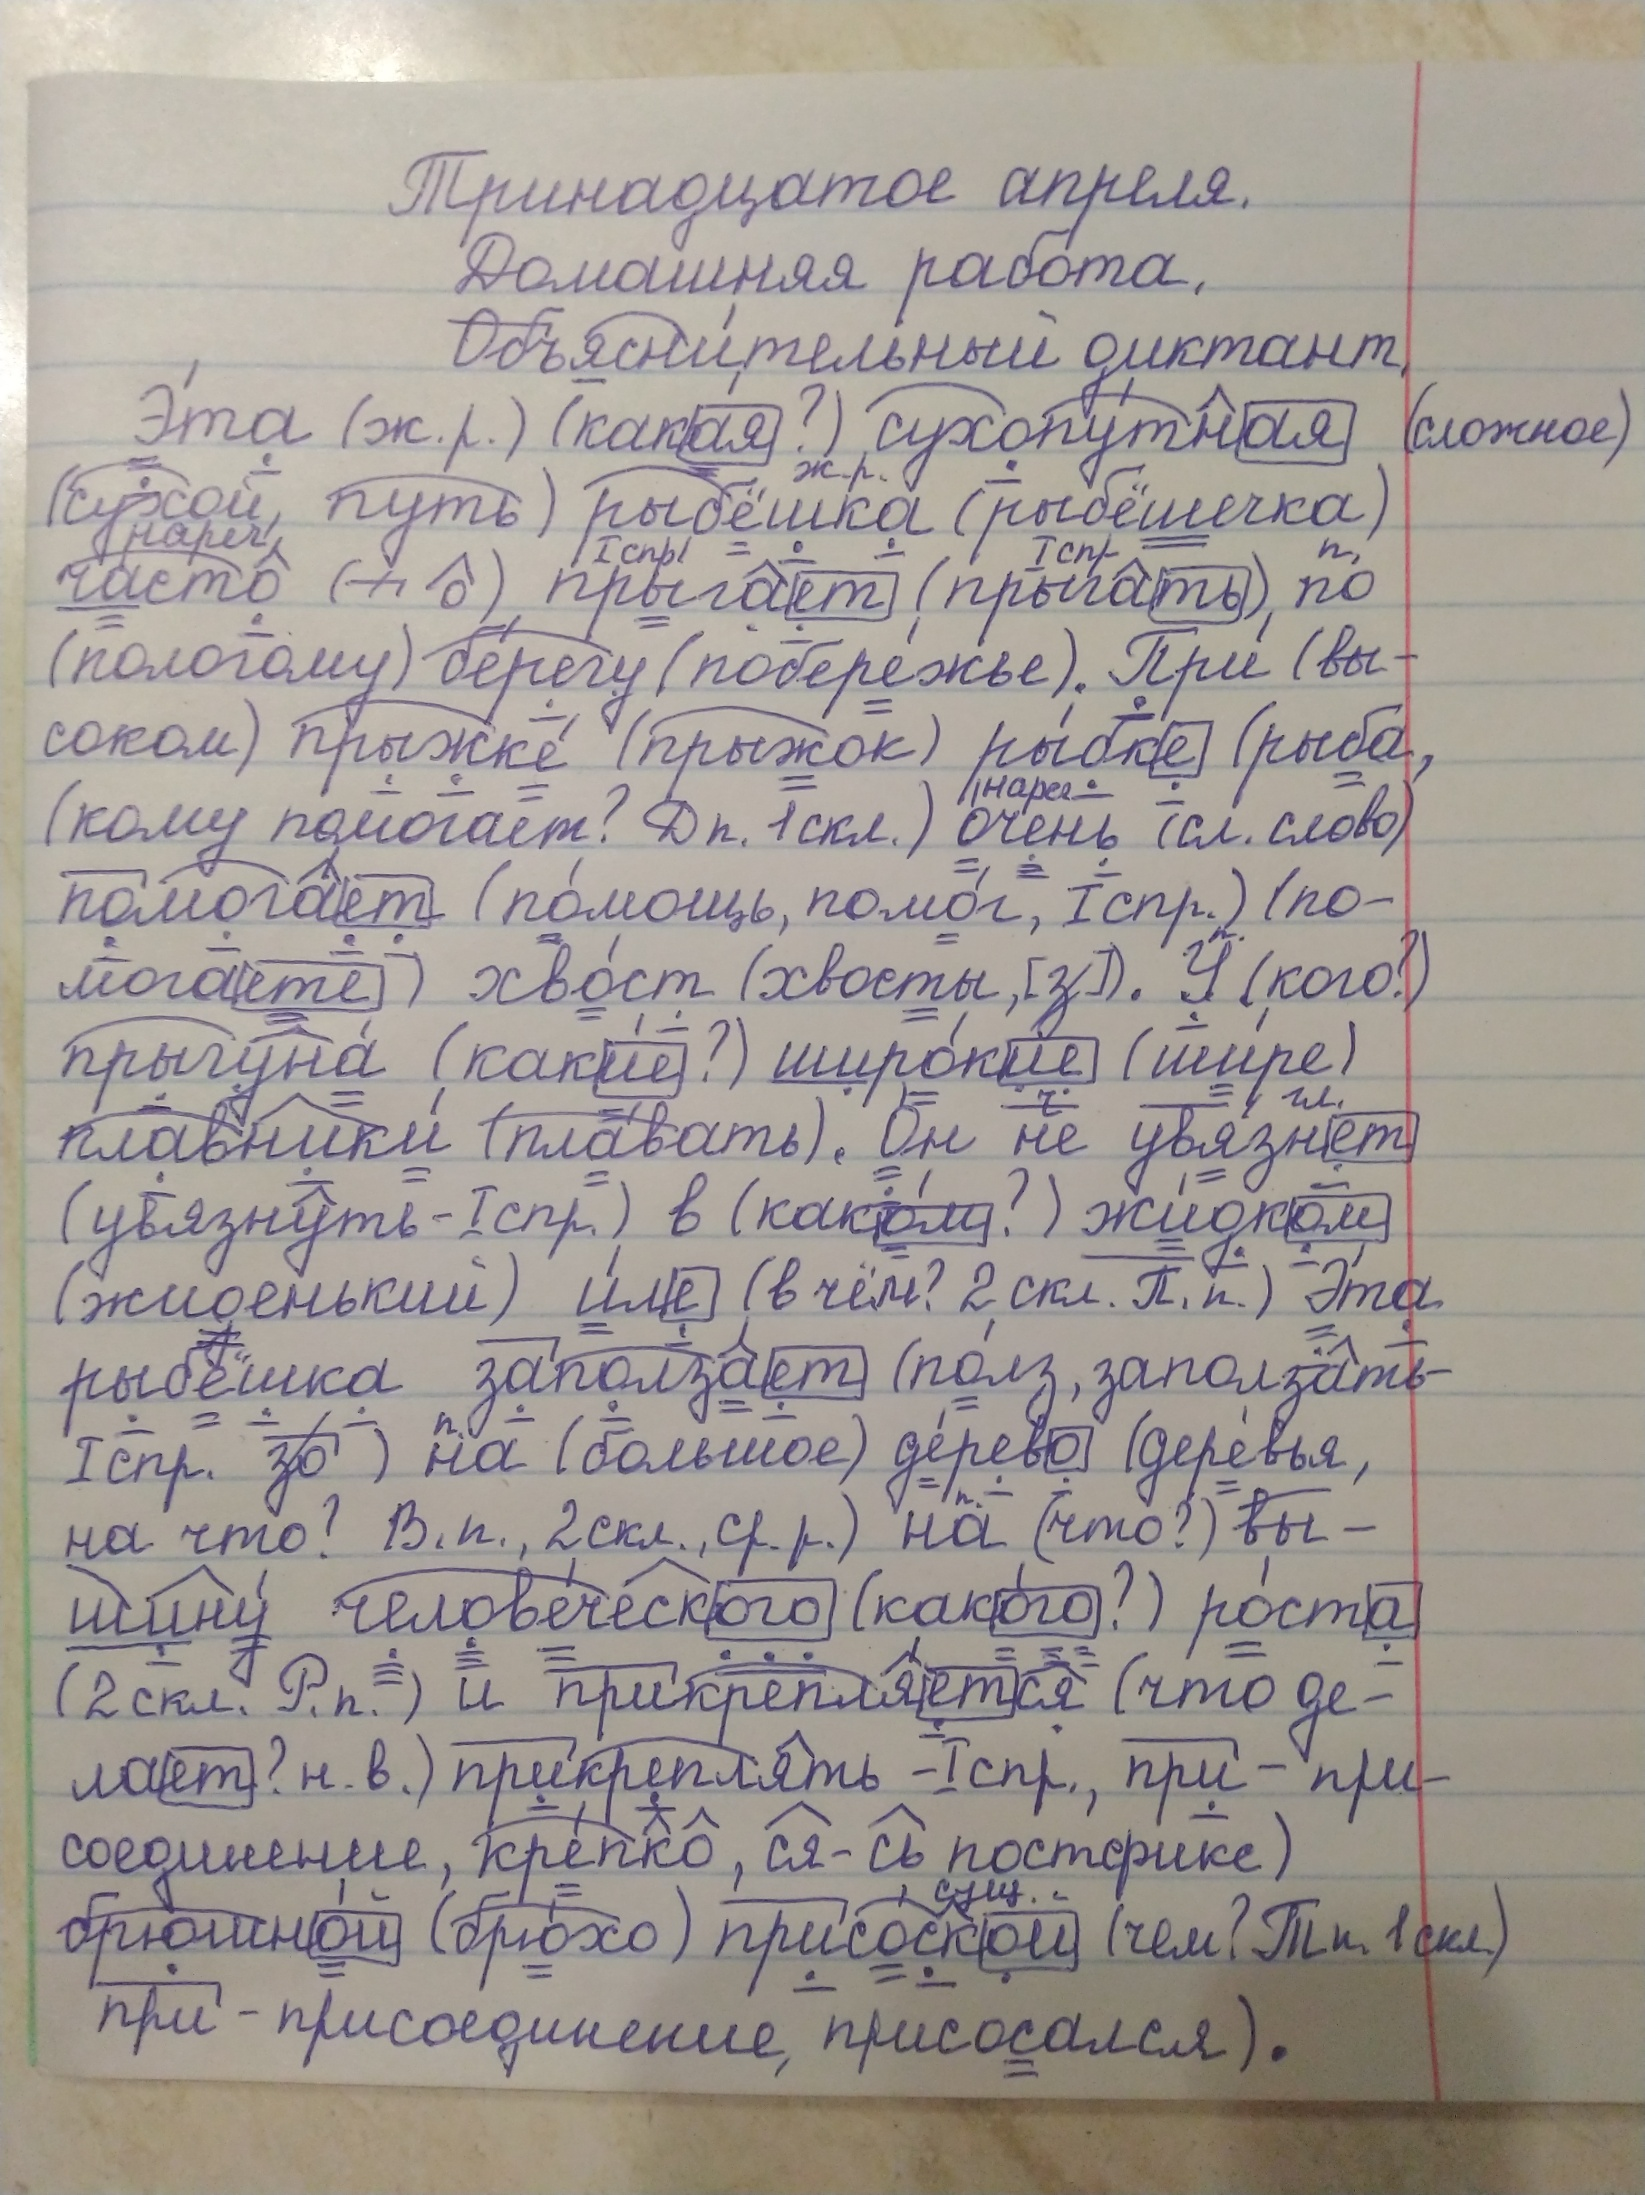 Тринадцатое апреля.
Домашняя работа.
Объяснительный диктант.
Эта (ж.р.) (какая?) сухопутная (сложное)
ж.р.
(сухой, путь) рыбёшка (рыбёшечка)
нареч. I спр. I спр. п.
часто (+ о), прыгает (прыгать), по
(пологому) берегу (побережье). При (вы-
соком) прыжке (прыжок) рыбке (рыба,
нареч.
(кому помогает? Д п. 1 скл.) очень (сл. слово)
помогает (помощь, помог, I спр.) (по-
п.
могаете) хвост (хвосты, [з]). У (кого?)
прыгуна (какие?) широкие (шире)
ч. гл.
плавники (плавать). Он не увязнет
(увязнуть - I спр.) в (каком?) жидком
(жиденький) иле (в чём? 2 скл. П. п.) Эта
рыбёшка заползает (полз, заползать-
п.
I спр. зо) на (большое) дерево (деревья,
п.
на что? В. п., 2 скл., ср. р.) на (что?) вы-
шину человеческого (какого?) роста
(2 скл. Р. п.) и прикрепляется (что де-
лает? н. в.) прикреплять - I спр., при - при-
соединение, крепко, ся - сь постфикс)
сущ.
брюшной (брюхо) присоской (чем? Т п. 1 скл.)
при - присоединение, присосался).